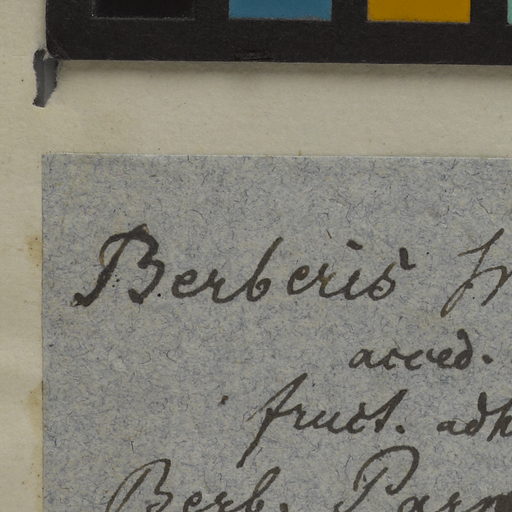 Berberis
acced.
fruct. adh
Berb. Parn